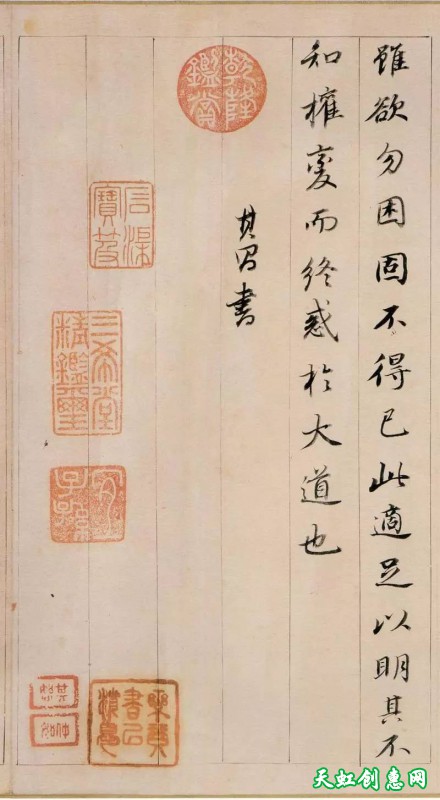 雖欲勿困固不得已此適足以明其不
知權變而終惑於大道也
其昌書
乾隆鑑賞
石渠寶笈
三希堂精鑑璽
宜子孫
天虹创惠网